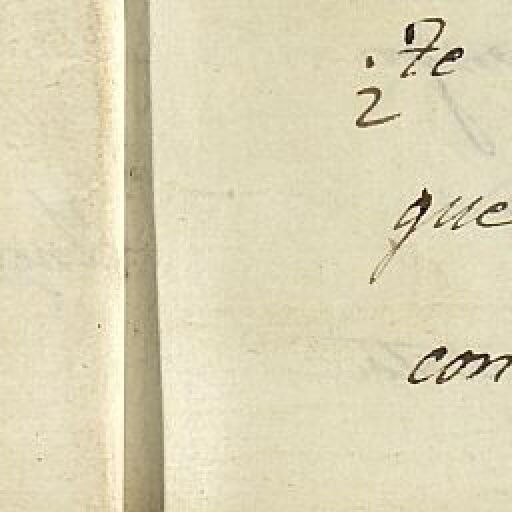 ¿Te
que
con